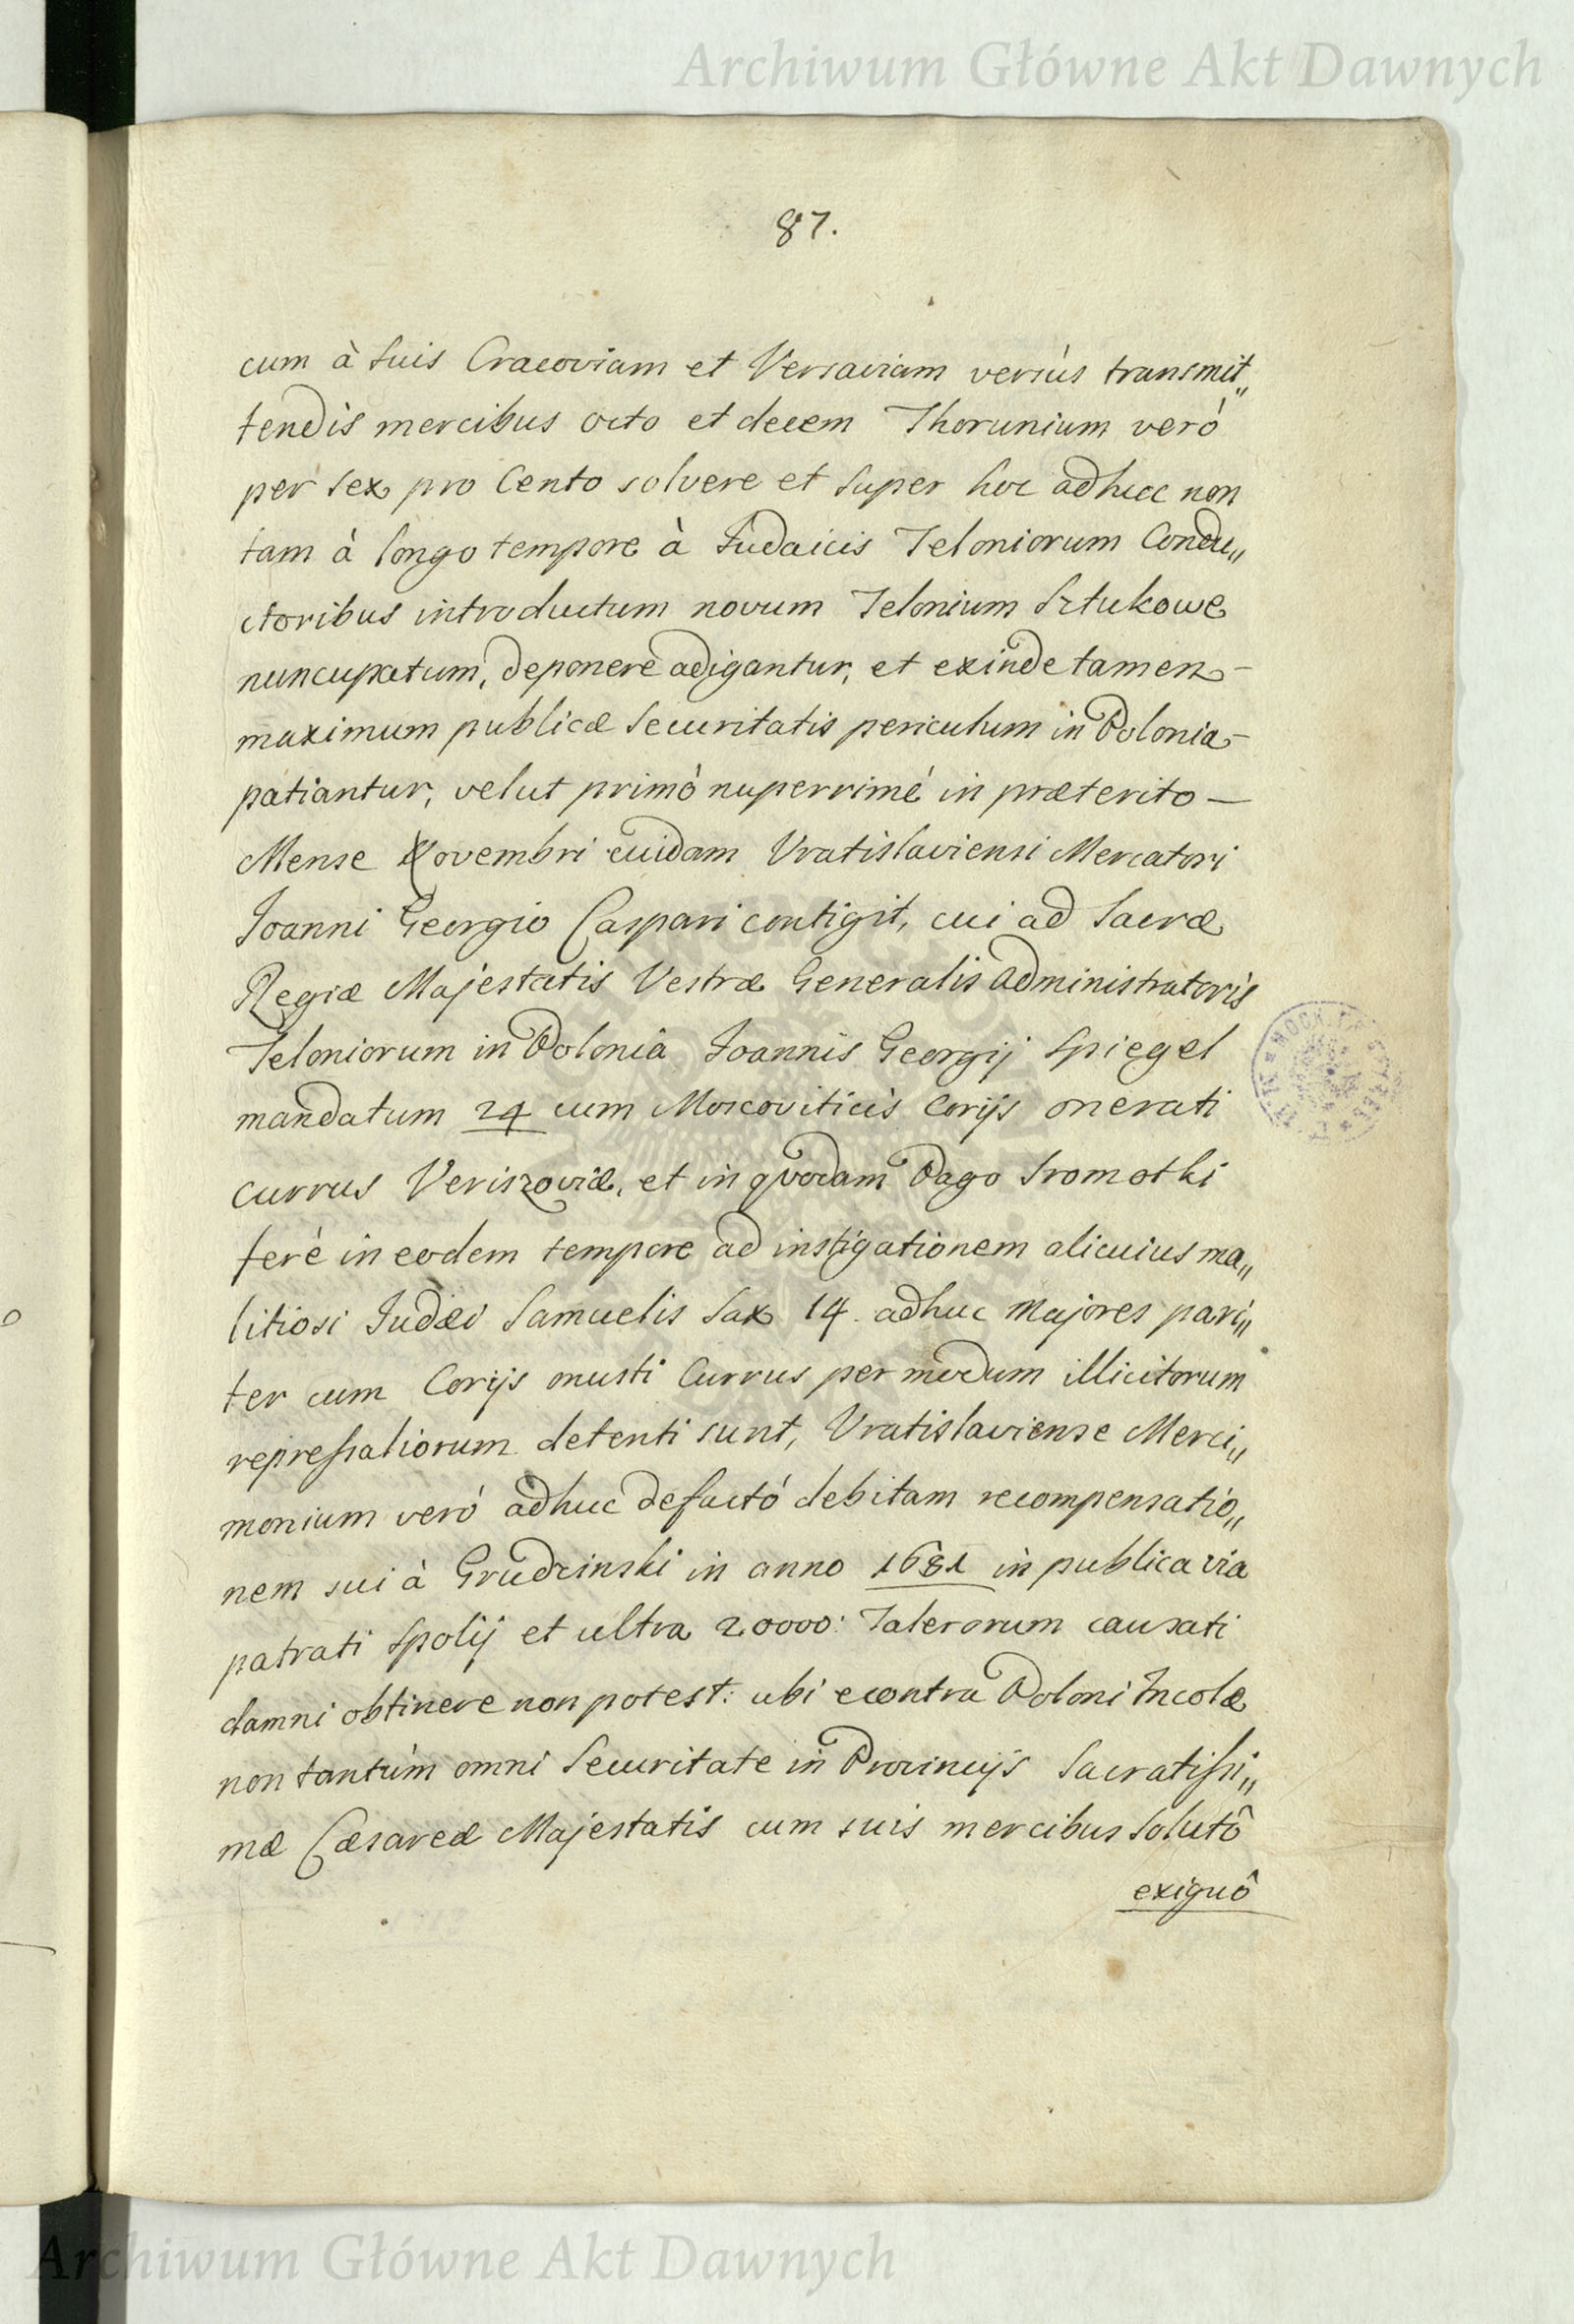 Archiwum Główne Akt Dawnych
87.
cum à suis Cracoviam et Versaviam versùs transmit„
tendis mercibus octo et decem Thorunium verò
per sex pro Cento solvere et super hoc adhuc non
tam à longo tempore à Judaicis Teloniorum Condu„
ctoribus introductum novum Telonium Sztukowe
nuncupatum, deponere adigantur, et exinde tamen –
maximum publicæ Securitatis periculum in Polonia –
patiantur, velut primò nuperrimè in præterito –
Mense Novembri cuidam Vratislaviensi Mercatori
Joanni Georgio Caspari contigit, cui ad Sacræ
Regiæ Majestatis Vestræ Generalis Administratoris
Teloniorum in Poloniâ Joannis Georgij Spiegel
mandatum 24 cum Moscoviticis Corijs onerati
currus Veriszoviæ, et in quodam Pago Sromotki
ferè in eodem tempore ad instigationem alicuius ma„
litiosi Judæi Samuelis Sax 14. adhuc Majores pari„
ter cum Corijs onusti Currus per modum illicitorum
repreſsaliorum detenti sunt, Vratislaviense Merci„
monium verò adhuc defactò debitam recompensatio„
nem sui à Grudzinski in anno 1681 in publica via
patrati Spolij et ultra 20000: Talerorum causati
damni obtinere non potest: ubi econtra Poloni Incolæ
non tantùm omni Securitate in Provincijs Sacratiſsi„
mæ Cæsareæ Majestatis cum suis mercibus Solutô
exiguô
Archiwum Główne Akt Dawnych